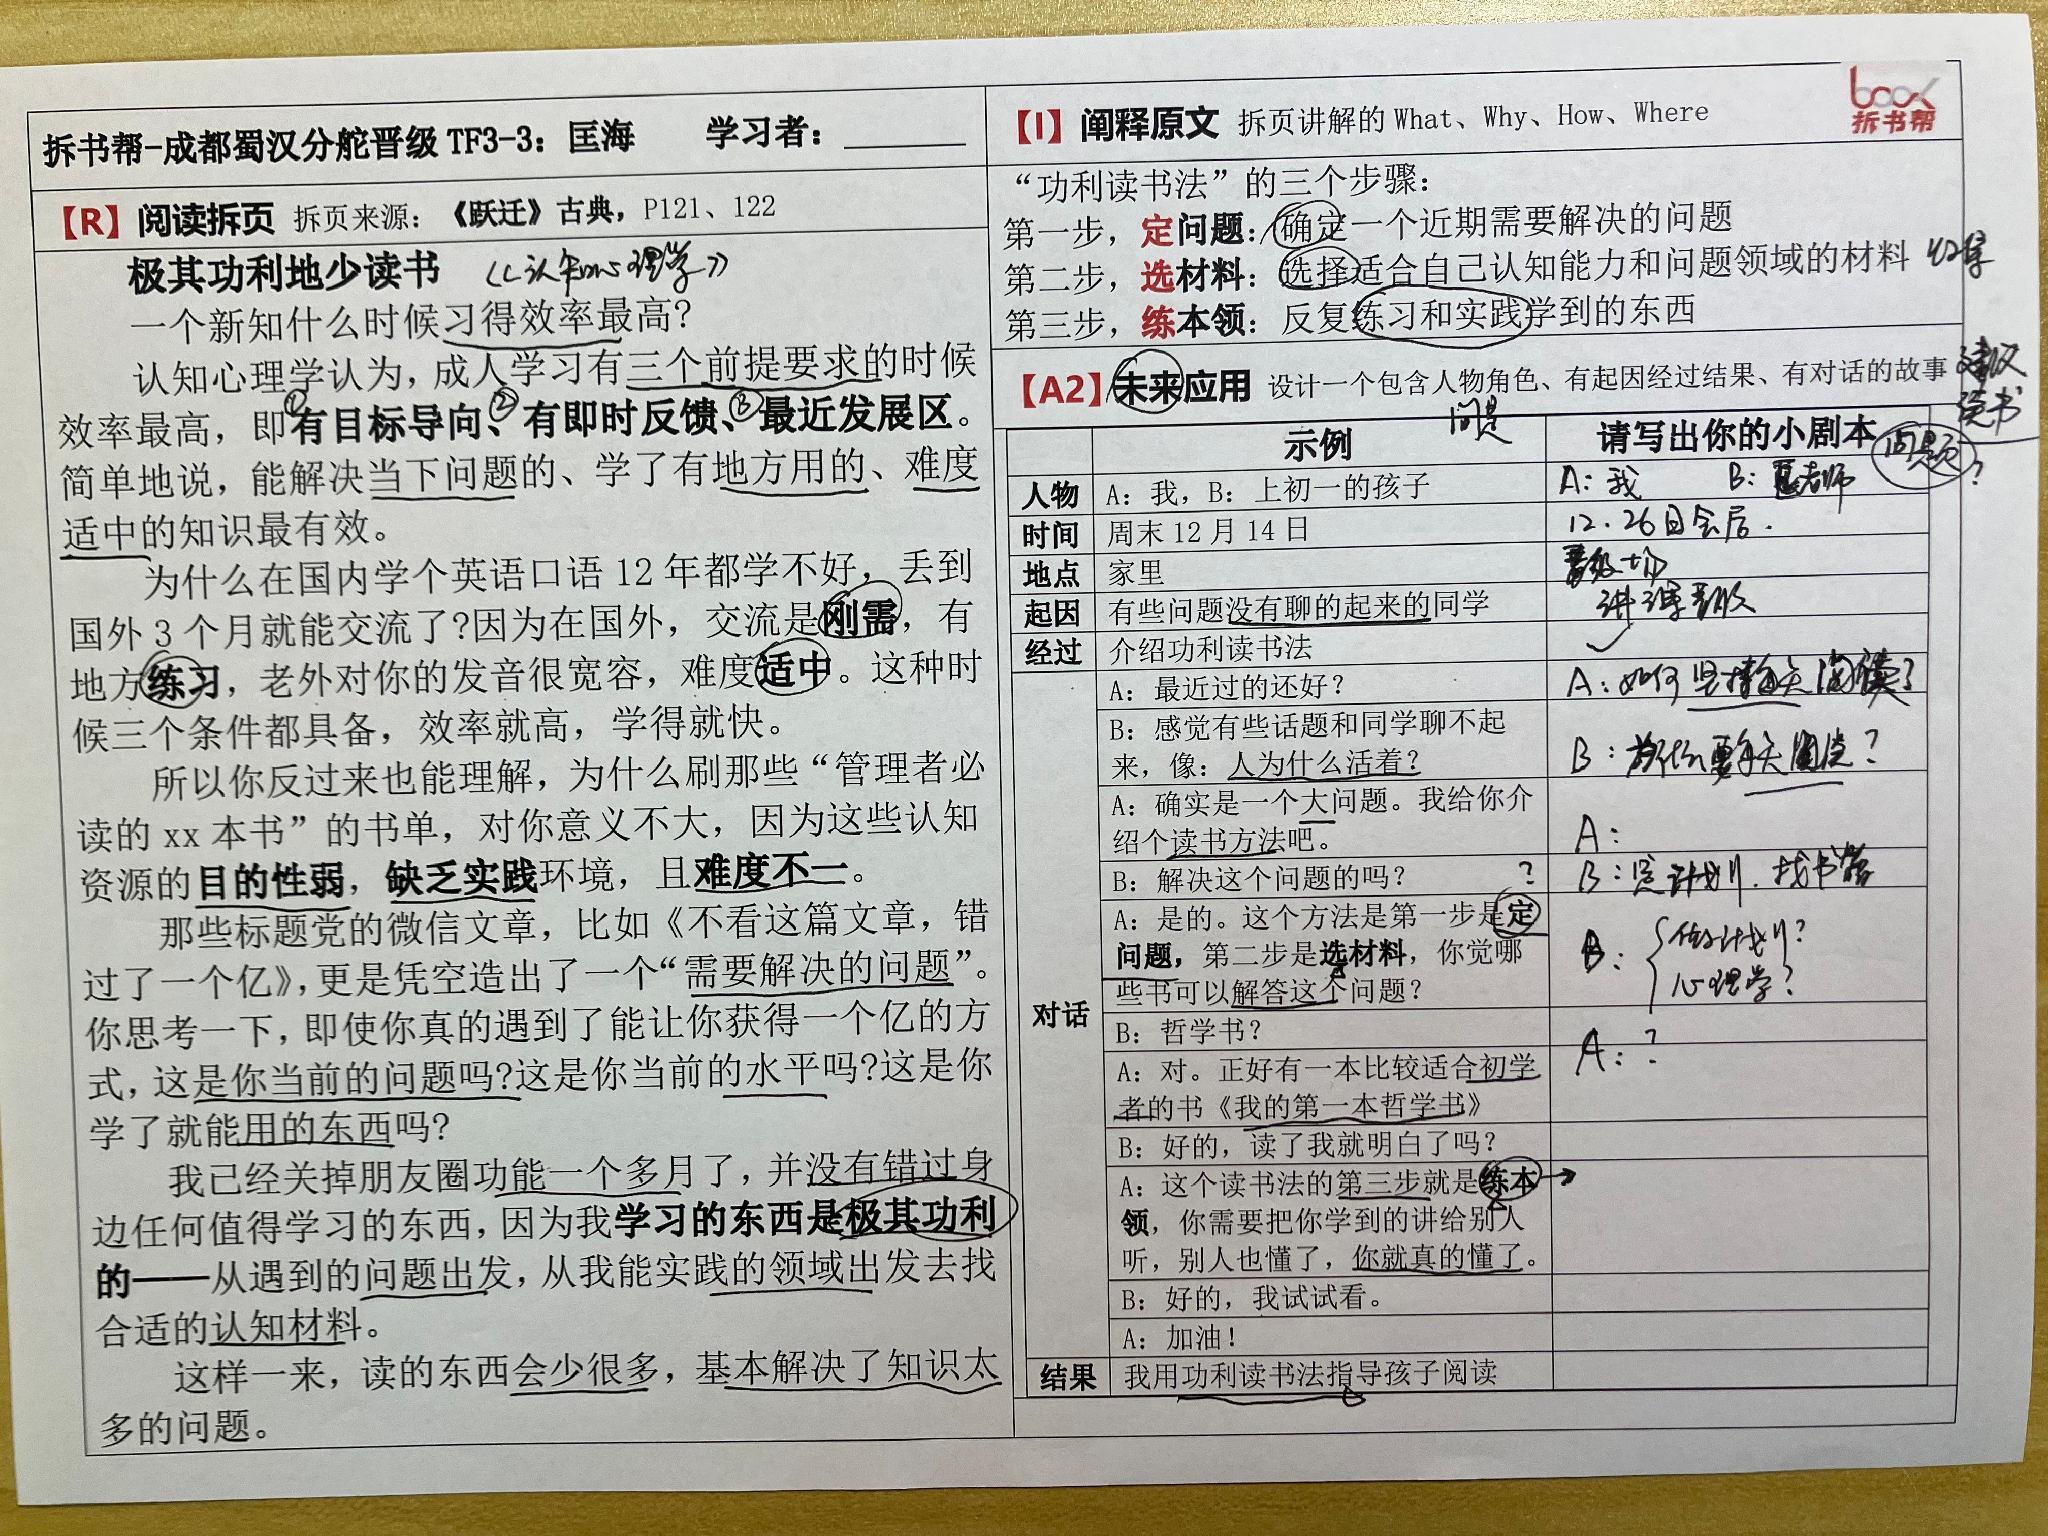 拆书帮-成都蜀汉分舵晋级 TF3-3：匡海 学习者：
【R】阅读拆页 拆页来源：《跃迁》古典，P121、122
极其功利地少读书 《认知心理学》
一个新知什么时候习得效率最高?
认知心理学认为，成人学习有三个前提要求的时候
① ② ③
效率最高，即有目标导向、有即时反馈、最近发展区。
简单地说，能解决当下问题的、学了有地方用的、难度
适中的知识最有效。
为什么在国内学个英语口语 12 年都学不好，丢到
国外 3 个月就能交流了?因为在国外，交流是刚需，有
地方练习，老外对你的发音很宽容，难度适中。这种时
候三个条件都具备，效率就高，学得就快。
所以你反过来也能理解，为什么刷那些“管理者必
读的 xx 本书”的书单，对你意义不大，因为这些认知
资源的目的性弱，缺乏实践环境，且难度不一。
那些标题党的微信文章，比如《不看这篇文章，错
过了一个亿》，更是凭空造出了一个“需要解决的问题”。
你思考一下，即使你真的遇到了能让你获得一个亿的方
式，这是你当前的问题吗?这是你当前的水平吗?这是你
学了就能用的东西吗?
我已经关掉朋友圈功能一个多月了，并没有错过身
边任何值得学习的东西，因为我学习的东西是极其功利
的——从遇到的问题出发，从我能实践的领域出发去找
合适的认知材料。
这样一来，读的东西会少很多，基本解决了知识太
多的问题。
【I】阐释原文 拆页讲解的 What、Why、How、Where
book
拆书帮
“功利读书法”的三个步骤：
第一步，定问题：确定一个近期需要解决的问题
第二步，选材料：选择适合自己认知能力和问题领域的材料
第三步，练本领：反复练习和实践学到的东西
【A2】未来应用 设计一个包含人物角色、有起因经过结果、有对话的故事
建议
读书
问题?
示例 请写出你的小剧本
人物 A：我，B：上初一的孩子 A: 我 B: 老师
时间 周末 12 月 14 日 12.26日会后.
地点 家里
起因 有些问题没有聊的起来的同学
经过 介绍功利读书法 ✓
对话
A：最近过的还好？ A: 如何坚持每天阅读?
B：感觉有些话题和同学聊不起
来，像：人为什么活着？ B: 为什么要每天阅读?
A：确实是一个大问题。我给你介
绍个读书方法吧。 A:
B：解决这个问题的吗？ ? B: 定计划. 找书
A：是的。这个方法是第一步是定
问题，第二步是选材料，你觉哪
些书可以解答这个问题？
B: { 做计划?
心理学?
B：哲学书？
A: ?
A：对。正好有一本比较适合初学
者的书《我的第一本哲学书》
B：好的，读了我就明白了吗？
A：这个读书法的第三步就是练本 →
领，你需要把你学到的讲给别人
听，别人也懂了，你就真的懂了。
B：好的，我试试看。
A：加油！
结果 我用功利读书法指导孩子阅读